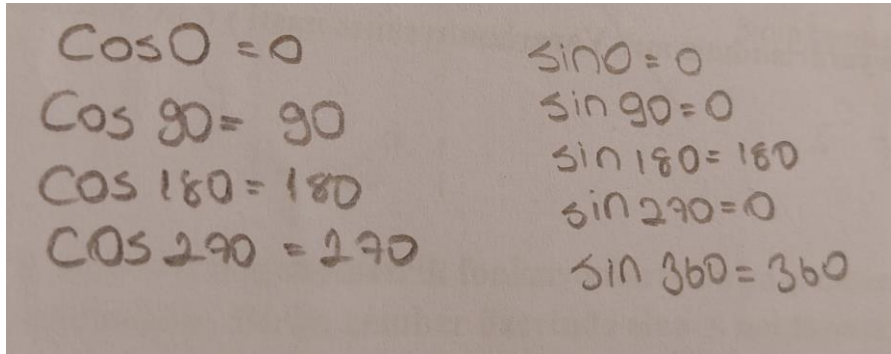 Cos0 = 0
Cos 90 = 90
Cos 180 = 180
COS 270 = 270
sin0 = 0
sin 90 = 0
sin 180 = 180
sin 270 = 0
sin 360 = 360